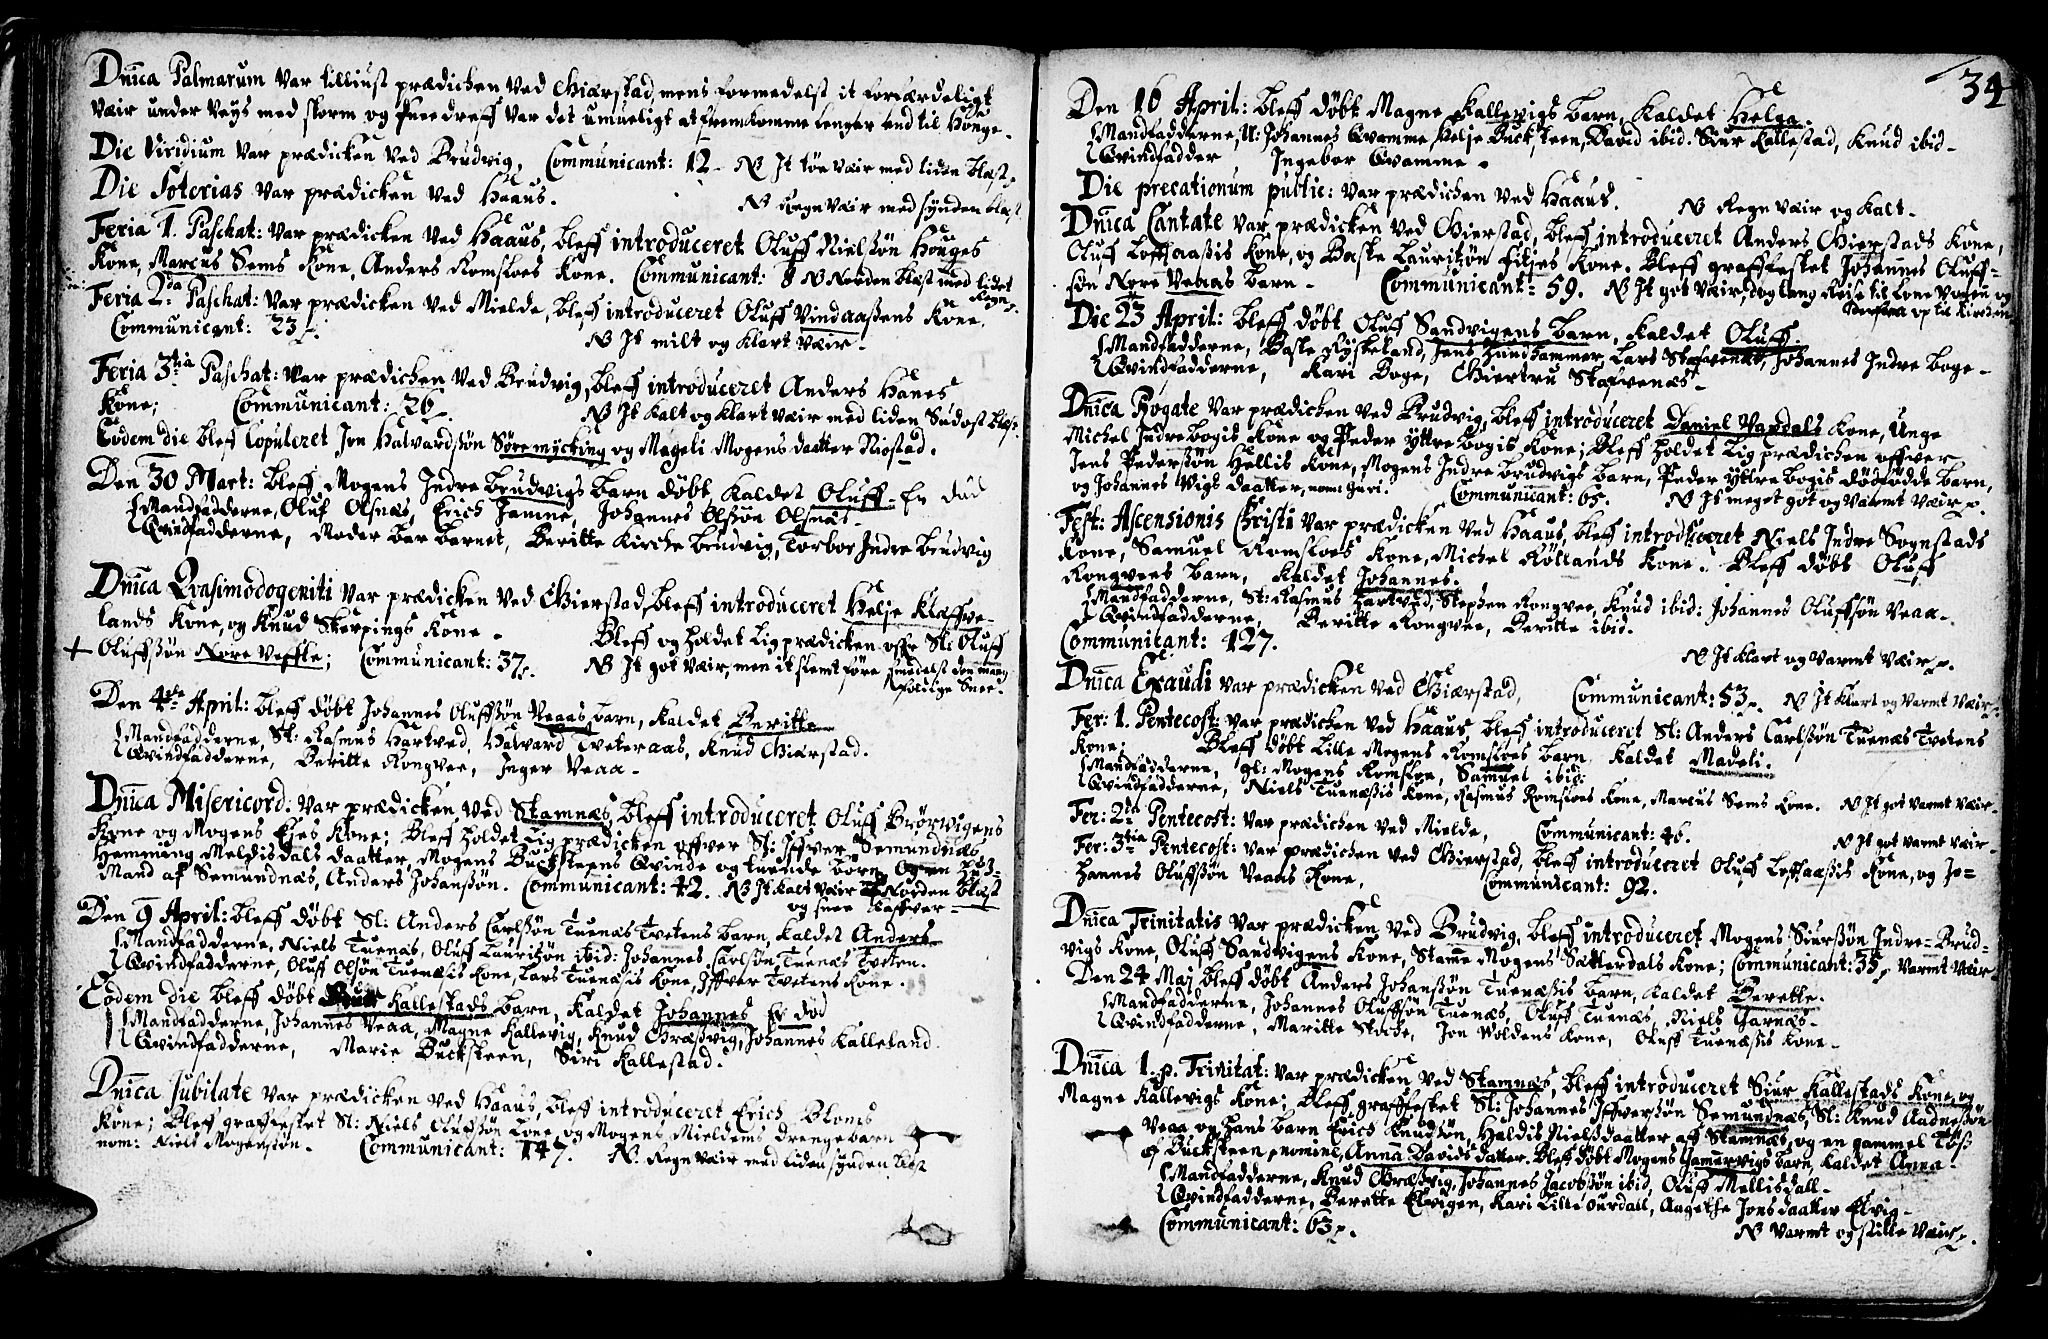 Dnica Palmarum var tilliust prædichen ved Giærstad, mens formedelst it forfærdeligt
væir under veys med storm og Sneedreff var det umueligt at fremkomme lenger end til Houge.
Die Viridium var prædicken ved Brudvig, Communicant: 12. NB It tøe væir med liden blæst.
Die Soterias var prædicken ved Haaus. NB Regn væir med synden blæst.
Feria 1. Paschat: var prædicken ved Haaus, bleff introduceret Oluff Nielssøn Houges
Kone, Marcus Sems Kone, Anders Romsloes Kone. Communicant: 8 NB Norden blæst med lidet
Regn.
Feria 2da Paschat: var prædicken ved Mielde, bleff introduceret Oluff Vindaassens Kone.
Communicant: 23. NB It milt og klart væir.
Feria 3tia Paschat: var prædichen ved Brudvig, bleff introduceret Anders Hanes
Kone; Communicant: 26. NB It kalt og klart væir med liden Sudost blæst.
Eodem die bleff Copuleret Jon Halvardssøn Søre mycking og Mageli Mogens daatter Niostad.
Den 30 Mart: bleff Mogens Indre Brudvigs barn døbt, kaldet Oluff. Er död
Mandfadderne, Oluf Olsnæs, Erich Jamne, Johannes Olssøn Olsnæs.
Qvindfadderne, Moder bar barnet, Beritte Kirche brudvig, Torbor Indre brudvig
Dnica Qvasimodogeniti var prædicken ved Gierstad, bleff introduceret Helje Klæffve-
lands Kone, og Knud Skerpings Kone. Bleff og holdet Lig prædicken offr Sl: Oluff
+ Oluffssøn Nore Veffle; Communicant: 37. NB It got væir, men it slemt føre formedelst den mang
foldige Snee.
Den 4de April: bleff døbt Johannes Oluffssøn Veaas barn, kaldet Beritte
Mandfadderne, St: Rasmus Hartved, Halvard Tveteraas, Knud Giærstad.
Qvindfadderne, Beritte Rongvee, Inger Veaa.
Dnica Misericord: var prædicken ved Stamnæs, bleff introduceret Oluff Brørvigens
Kone og Mogens Ejes Kone; Bleff holdet Lig prædicken offver Sl: Iffver Semundnæs
Hemming Meldisdals daatter, Mogens Bucksteens Qvinde og tuende børn, Og en huus-
Mand af Semundnæs, Anders Johanssøn. Communicant: 42. NB It kalt væir Norden blæst
og snee kaffver.
Den 9 April: bleff døbt Sl: Anders Carlssøn Tuenæs Tvetens barn, kaldet Anders
Mandfadderne, Niels Tuenæs, Oluff Lauritzøn ibid: Johannes Carlssøn Tuenæs Tveten.
Qvindfadderne, Oluff Olsøn Tuenæsis Kone, Lars Tuenæsis Kone, Iffver Tvetens Kone.
Eodem die bleff døbt Kallestads barn, kaldet Johannes Er död
Mandfadderne, Johannes Veaa, Magne Kallevig, Knud Græsvig, Johannes Kalleland.
Qvindfadderne, Marie Bucksteen, Siri Kallestad.
Dnica Jubilate var prædicken ved Haaus, bleff introduceret Erich Bloms
Kone; Bleff graffæstet Sl: Niels Olufssøn Lone, og Mogens Mieldems drengebarn
nom: Niels Mogenssøn. Communicant: 147. N. Regn væir med liden synden blæst
34
Den 16 April: bleff døbt Magne Kallevigs barn, kaldet Helga.
Mandfadderne, N: Johannes Qvamme, Helje Bucksteen, David ibid. Siur Kallestad, Knud ibid.
Qvindfadder Ingebor Qvamme.
Die precationum public: var prædichen ved Haaus. NB Regn væir og kalt.
Dnica Cantate var prædicken ved Gierstad, bleff introduceret Anders Gierstads Kone,
Oluff Loffaassis Kone, og Baste Lauritzøn Filjes Kone. Bleff graffæstet Johannes Oluff-
søn Nore Veaas barn. Communicant: 59. NB It got væir, dog lang Reise til Lone Vatten og
op til Kirchen
Die 23 April: bleff døbt Oluff Sandvigens barn, kaldet Oluff.
Mandfadderne, Baste Ryskeland, Jens Hundhammer, Lars Stafvenæs, Johannes Indre boge.
Qvindfadderne, Kari Boge, Giertru Stafvenæs.
Dnica Rogate var prædicken ved Brudvig, bleff introduceret Daniel Vaxdals Kone, Unge
Michel Indrebogis Kone og Peder Yttre bogis Kone; Bleff holdet Lig prædichen offver
Jens Pederssøn Hellis Kone, Mogens Indre brudvigs barn, Peder Yttre bogis dödfödde barn,
og Johannes Vigs daatter, nom: Guri. Communicant: 65. NB It meget got og varmt væir.
Fest: Ascensionis Christi var prædicken ved Haaus, bleff introduceret Niels Indre Sognstads
Kone, Samuel Romsloes Kone, Michel Röllands Kone. Bleff døbt Oluff
Rongvees barn, kaldet Johannes.
Mandfadderne, St: Rasmus Hartved, Stephen Rongvee, Knud ibid: Johannes Oluffsøn Veaa.
Qvindfadderne, Beritte Rongvee, Beritte ibid.
Communicant: 127. NB It klart og varmt væir.
Dnica Exaudi var prædicken ved Giærstad, Communicant: 53. NB It klart og varmt væir.
Fer: 1. Pentecost: var prædicken ved Haaus, bleff introduceret Sl: Anders Carlssøn Tuenæs Tvetens
Kone; Bleff døbt Lille Mogens Romsloes barn, kaldet Madeli.
Mandfadderne, gl: Mogens Romsloe, Samuel ibid:
Qvindfadderne, Niels Tuenæssis Kone, Rasmus Romsloes Kone, Marcus Sems Kone. NB It got varmt væir.
Fer: 2da Pentecost: var prædichen ved Mielde, Communicant: 46. NB It got varmt væir.
Fer: 3tia Pentecost: var prædichen ved Gierstad, bleff introduceret Oluff Loffaassis Kone, og Jo-
hannes Oluffsøn Veaas Kone, Communicant: 92.
Dnica Trinitatis var prædicken ved Brudvig, bleff introduceret Mogens Siurssøn Indre-Brud-
vigs Kone, Oluff Sandvigens Kone, Stame Mogens Sætterdals Kone; Communicant: 35. varmt Vær
Den 24 Maj bleff døbt Anders Johanssøn Tuenæssis barn, kaldet Berette.
Mandfadderne, Johannes Oluffsøn Tuenæs, Oluff Tuenæs, Niels Garnæs.
Qvindfadderne, Maritte Stoche, Jon Woldens Kone, Oluff Tuenæssis Kone.
Dnica 1. p. Trinitat: var prædicken ved Stamnæs, bleff introduceret Siur Kallestads Kone, og
Magne Kallevigs Kone; Bleff graffæstet Sl: Johannes Iffverssøn Semundnæs, Sl: Knud Aadnessøn
Veaa og hans barn Erich Knudsøn, Haldis Nielsdaatter af Stamnæs, og en gammel Töss
af Bucksteen, nomine, Anna Davids datter. Bleff døbt Mogens Jamervigs barn, kaldet Anna.
Mandfadderne, Knud Græsvig, Johannes Jacobssøn ibid, Oluff Mellisdall.
Qvindfadderne, Berette Elvigen, Kari Lille Ourdall, Aagethe Jons daatter Elvig.
Communicant: 63. NB Varmt og stille væir.